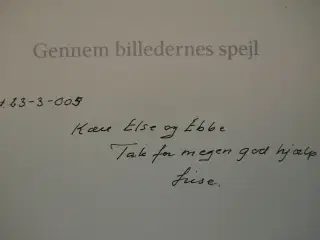 Gennem billedernes spejl
d. 23-3-005
Kære Else og Ebbe
Tak for megen god hjælp